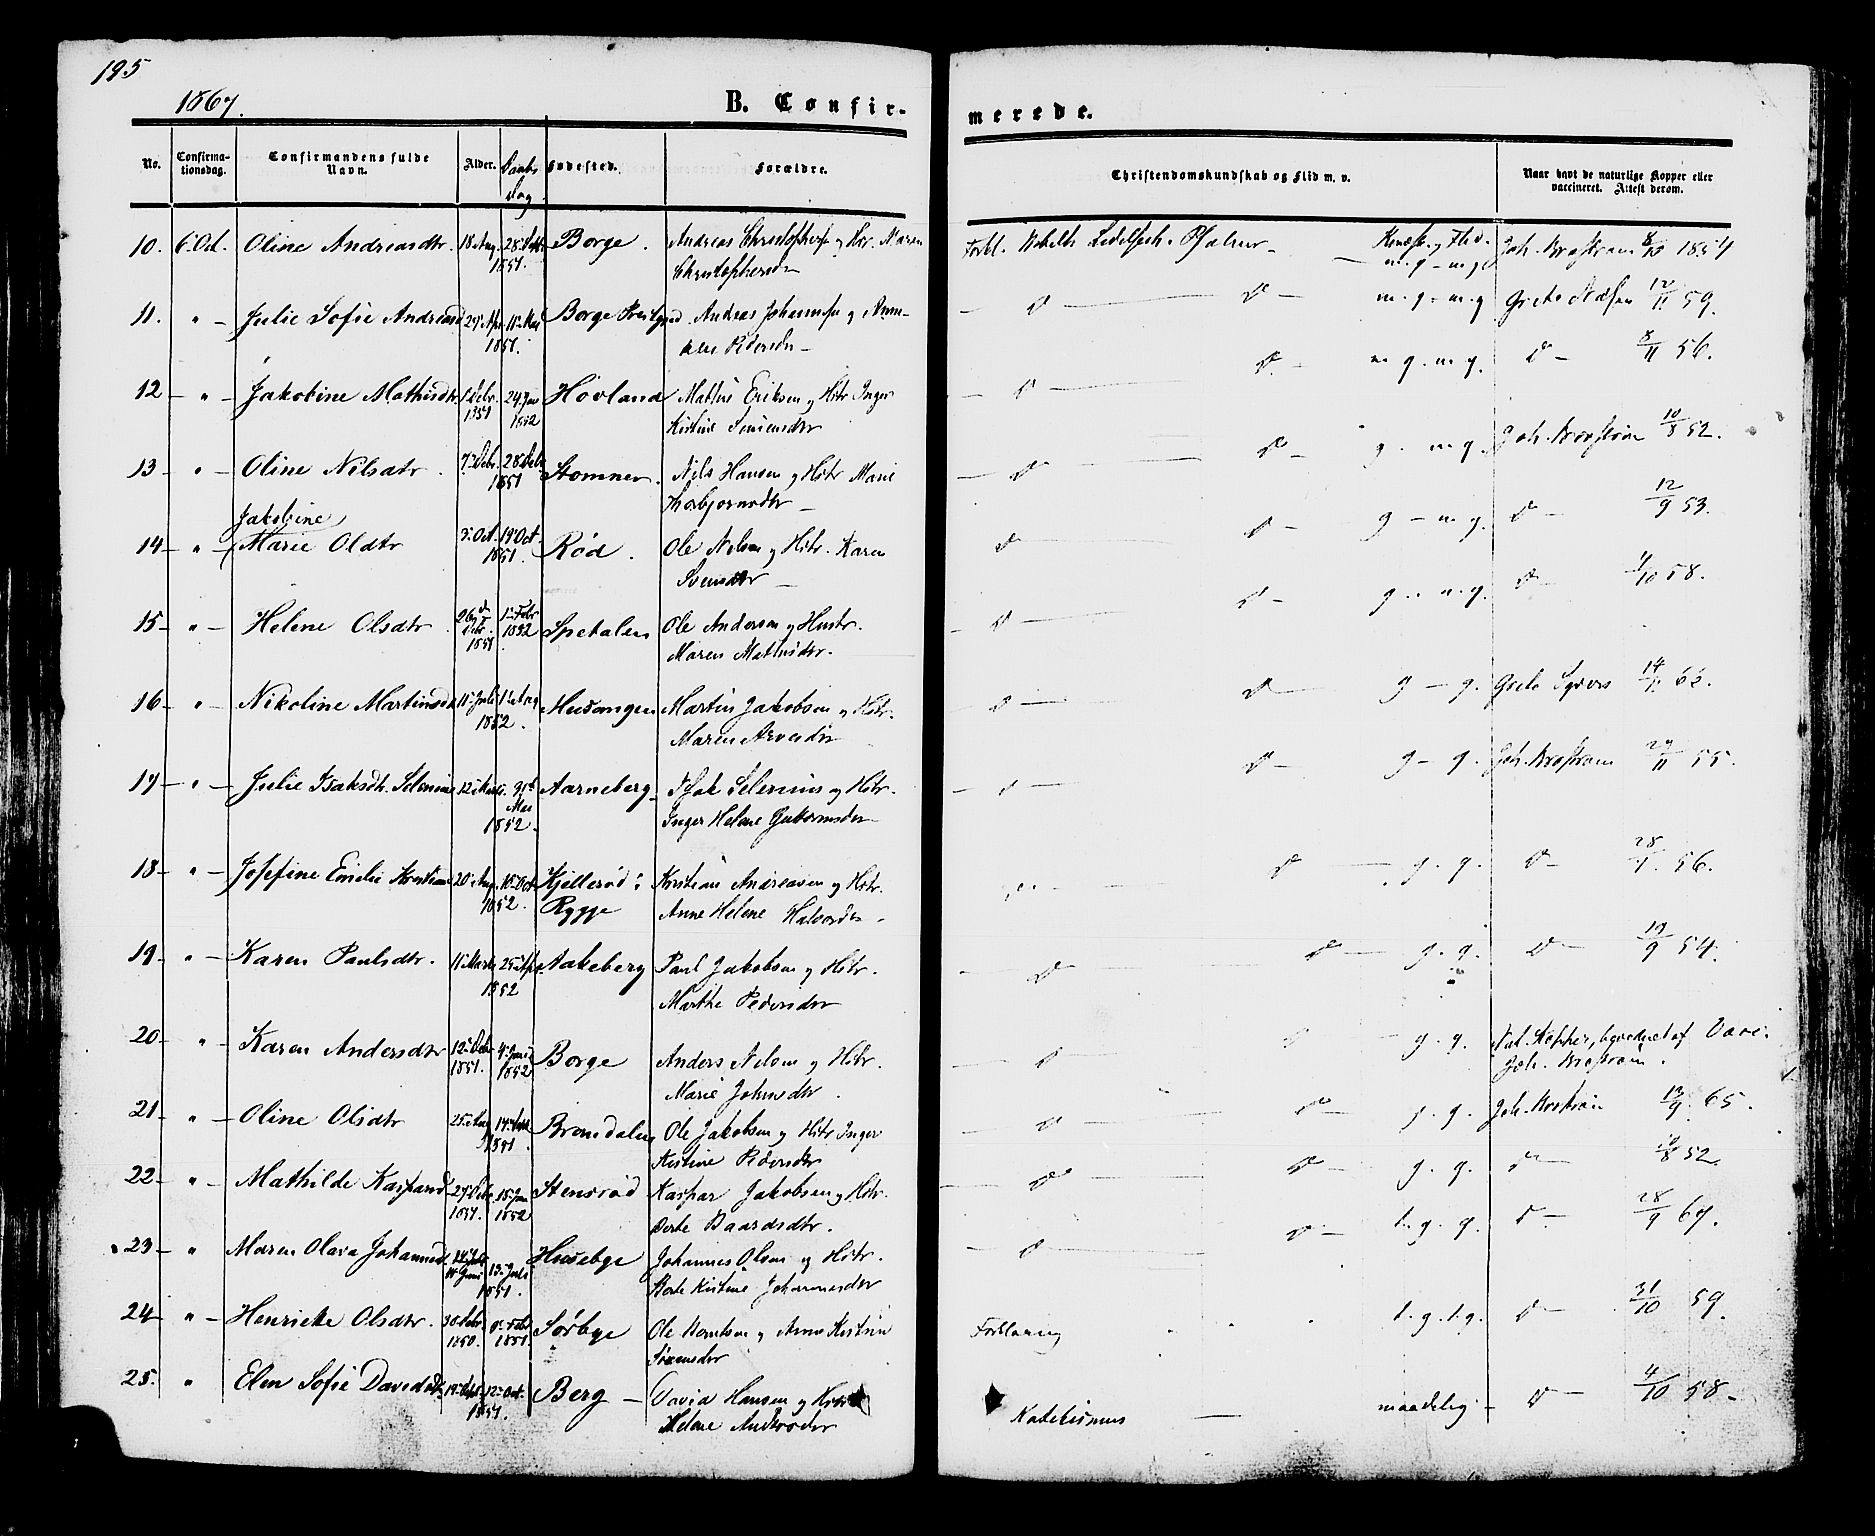 195
1867.
B. Confir-
merede.
No.
Confirma-
tionsdag.
Confirmandens fulde
Navn.
Alder.
Daabs
dag
Fødested.
Forældre.
Christendomskundskab og Flid m. v.
Naar havt de naturlige Kopper eller
vaccineret. Attest derom.
10. 6 Oct. Oline Andreasdtr. 18 Aug. 28 1851 Borge. Andreas Christophers. og Maren
Christophersdr
Forkl. Psalmer – Kundsk. og Flid. m.g – m.g Joh. 8/10 1854
11. " – Julie Sofie Andreasd 29 Apr 11 Mai 1851. Borge Andreas Johannesen og Ann-
Pedersdr –
– d – d – m.g – m.g Grete 12/11 59.
12 – " – Jakobine Mathisdtr. 1 Debr. 1851 24 Jan 1852 Hovland Mathis Eriksen og Hstr Inger
Kirstine Sørensdtr
– d – d – m g. m g. d – 8/11 56.
13 – " – Oline Nilsdtr. 7 Debr. 28 Debr 1851 Stomner. Nils Hansen og Hstr Marie
Thorbjørnsdtr –
– d – d – g. m g. Joh. 10/8 52.
Jakobine
14 – " – Marie Oldtr 3 Oct. 19 Oct. 1851. Rød. Ole Nilsen og Hstr. Karen
Svensdtr –
d – d – g – m.g. d – 12/9 53.
15 – " – Helene Olsdtr. 26 Debr. 1851 1 Febr 1852 Spetalen Ole Andersen og Hustr.
Maren Mathisdtr.
– d – d – g. m.g. d – 4/10 58.
16 – " – Nikoline Martinsdtr 11 Juli 1 Aug 1852. Husangen Martin Jakobsen og Hstr.
Maren
d – d – g – g. Grete Syvers 14/1 63.
17 – " – Julie Isaksdtr. Selenius 12 Mars. 9 Mai 1852. Aarneberg Isak Selenius og Hstr.
Inger Helene Guttormsdtr
– d – d – g – g. Joh. 29/11 55.
18 – " – Josefine Emilie Kristians 20 Aug. 10 Oct. 1852. Kjellerød i
Rygge Kristian Andreasen og Hstr.
Anne Helene Halvorsdtr –
d – g. g. d – 28/1. 56.
19 – " – Karen Paulsdtr. 11 Marts 25 Apr 1852 Aakeberg Paul Jakobsen og Hstr.
Marthe Pedersdtr
– d – d – g. g. d – 19/9 54.
20 – " – Karen Andersdtr 12 Debr 1851. 4 Juni 1852 Borge Anders Nilsen og Hstr.
Marie Johnsdtr.
– d – g. g. Nat. Kopper, bevidnet af Vacc.
Joh.
21 – " – Oline Olsdtr 25 Aug 14 1851. Bromdalen Ole Jakobsen og Hstr Inger
Kistine Pedersdtr
– d – d – g. g. Joh. 13/9. 65.
22 – " – Mathilde Kaspersd 27 Debr 1851. 18 Jan 1852 Stensrød Kaspar Jakobsen og Hstr.
Dorte Baardsdtr.
– d – d – g. g. d – /8 52.
23 – " Maren Olava Johannesd 11 Juni 13 Juli 1851. Husebye Johannes Olsen og Hstr.
Dorte Kistine Johannesdtr
– d – d – t. g. g. d – 28/9 67.
24 – " – Henrikke Olsdtr. 30 Debr 1850. 9 Febr 1851. Sørbye Ole og Anne Kistine
Sørensdtr
Forklaring t.g. t.g. d – 31/10 59.
25. " Elen Sofie Davidsdtr. 19 Sept 12 Oct. 1851. Berg – David Hansen og Hstr
Helene
Katekismus – maadelig – d – 4/10 58 –